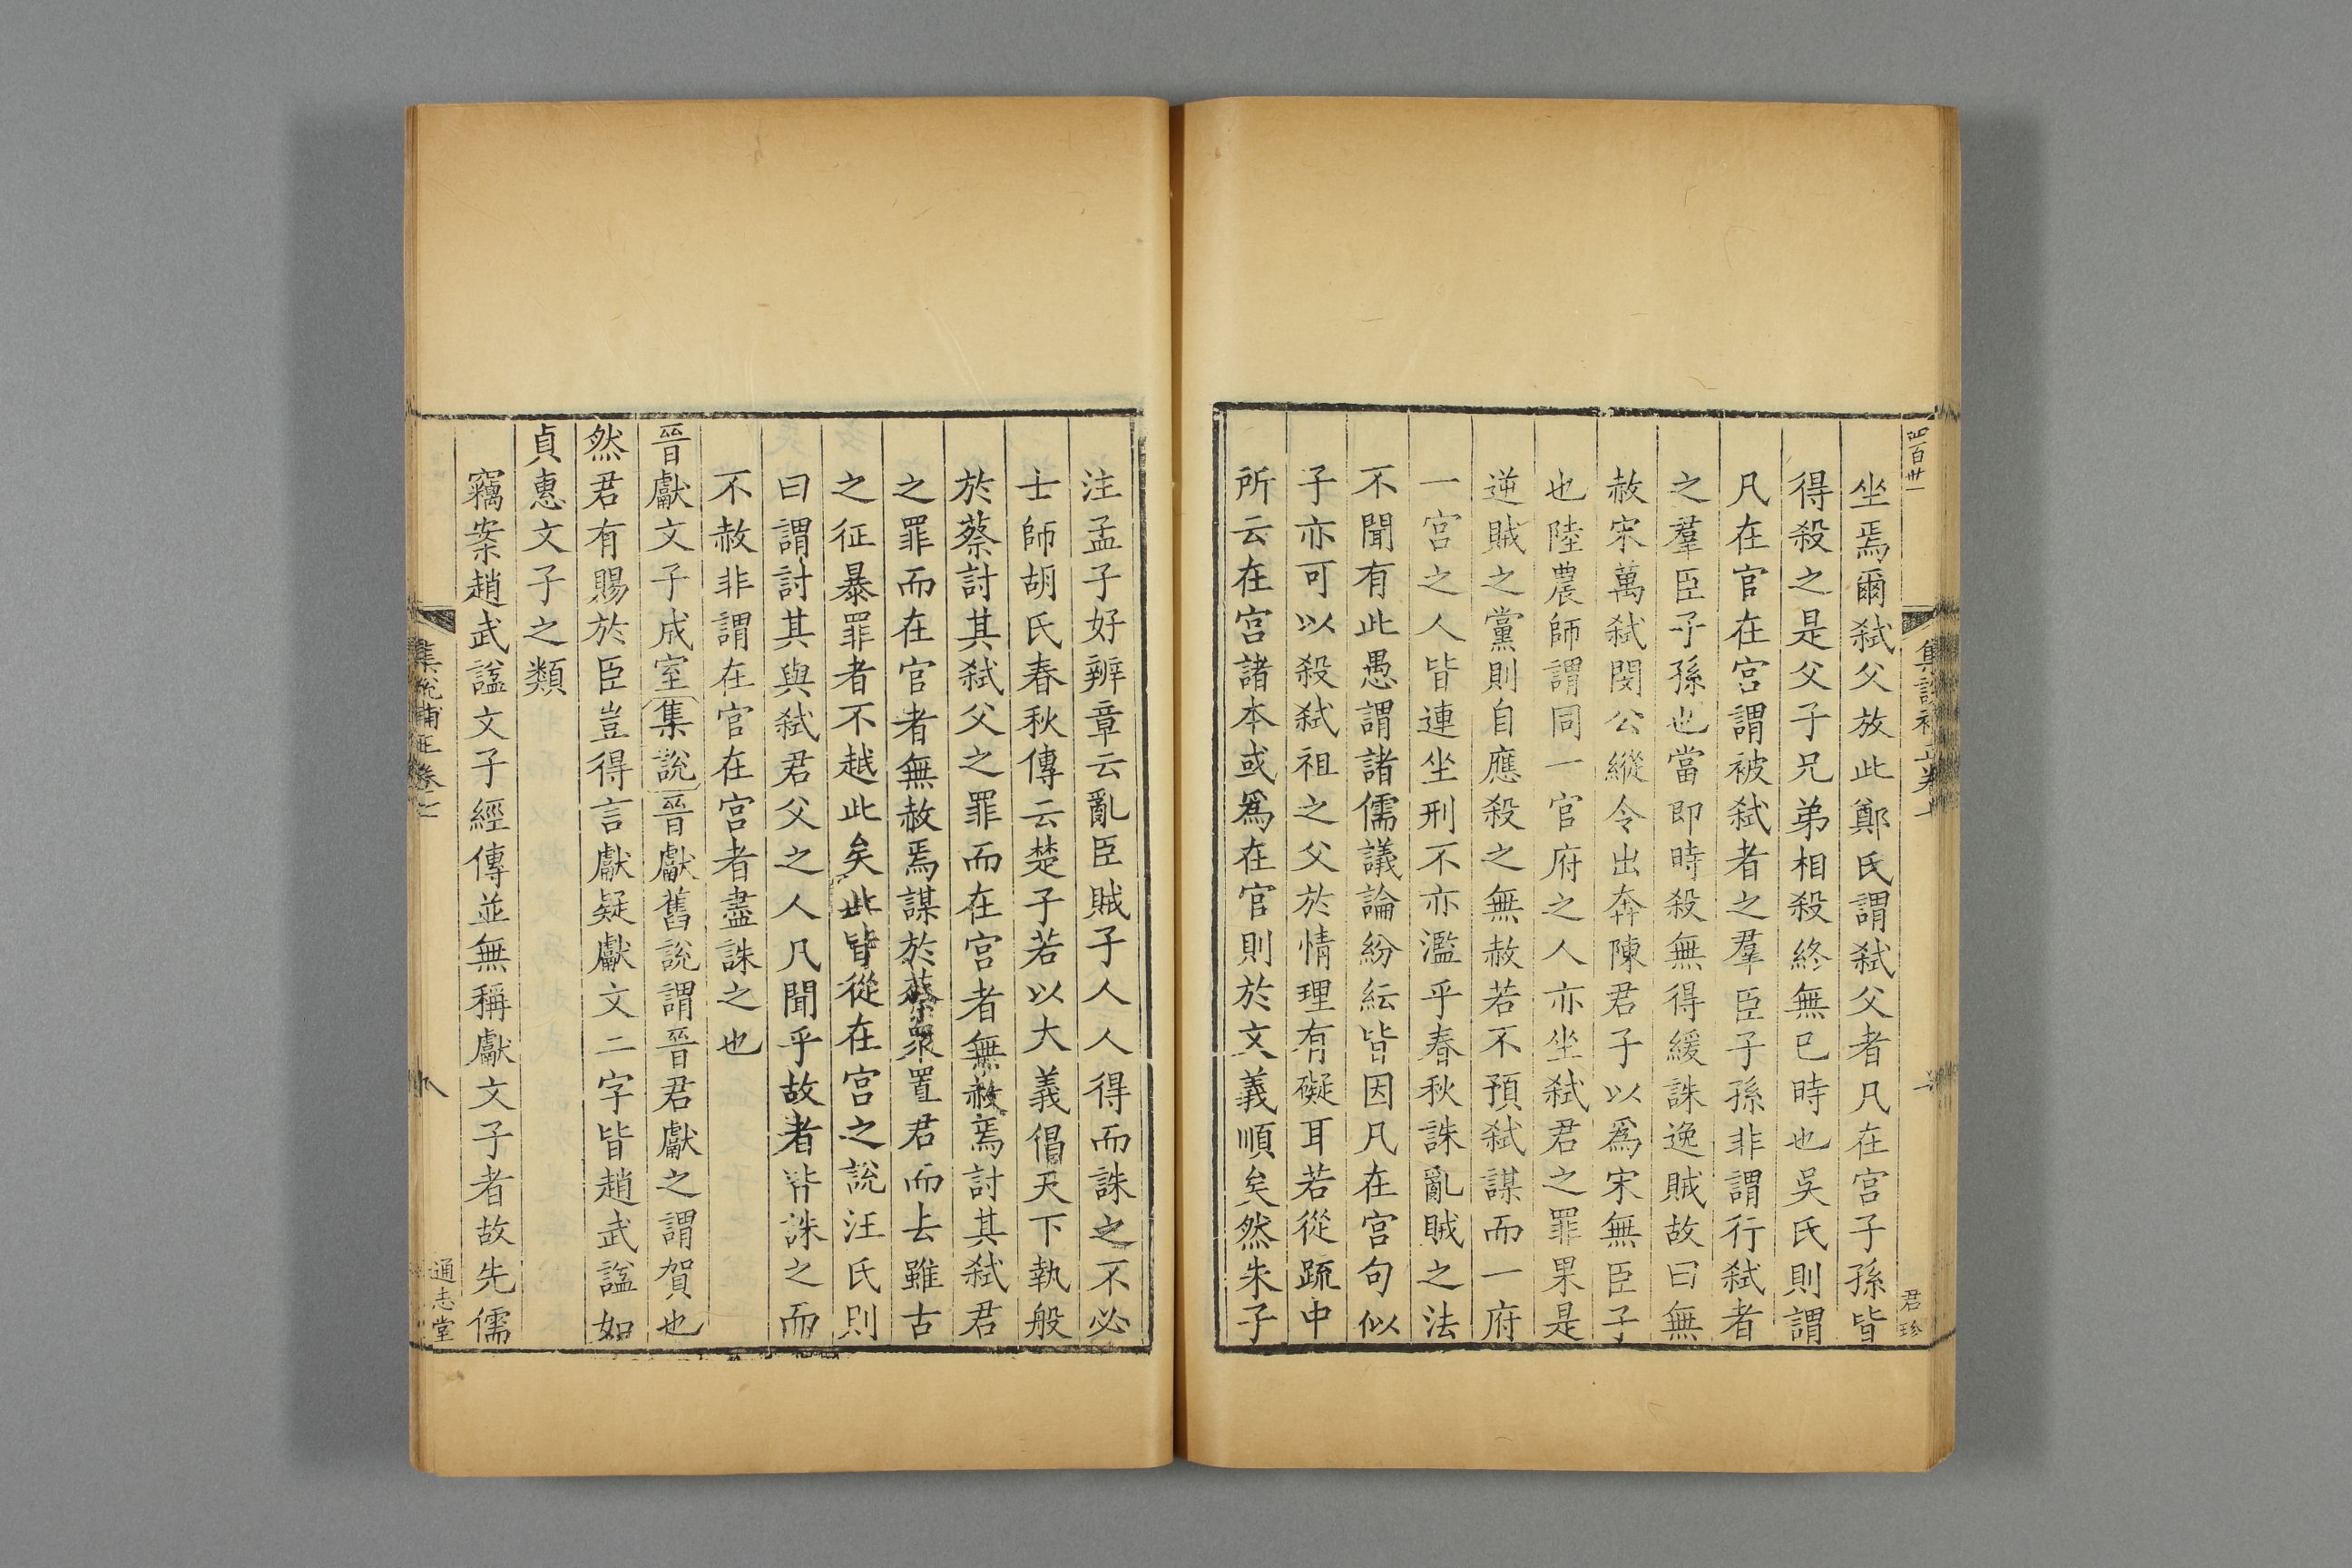 百卅一
君珍
坐焉爾弑父放此鄭氏謂弑父者凡在宮子孫皆
得殺之是父子兄弟相殺終無已時也吳氏則謂
凡在官在宮謂被弑者之羣臣子孫非謂行弑者
之羣臣子孫也當即時殺無得緩誅逸賊故曰無
赦宋萬弑閔公縱令出奔陳君子以爲宋無臣子
也陸農師謂同一官府之人亦坐弑君之罪果是
逆賊之黨則自應殺之無赦若不預弑謀而一府
一宮之人皆連坐刑不亦濫乎春秋誅亂賊之法
不聞有此愚謂諸儒議論紛紜皆因凡在宮句似
子亦可以殺弑祖之父於情理有礙耳若從疏中
所云在宮諸本或爲在官則於文義順矣然朱子
注孟子好辨章云亂臣賊子人人得而誅之不必
士師胡氏春秋傳云楚子若以大義倡天下執般
於蔡討其弑父之罪而在宮者無赦焉討其弑君
之罪而在官者無赦焉謀於蔡衆置君而去雖古
之征暴罪者不越此矣此皆從在宮之說汪氏則
曰謂討其與弑君父之人凡聞乎故者皆誅之而
不赦非謂在官在宮者盡誅之也
晉獻文子成室集說晉獻舊說謂晉君獻之謂賀也
然君有賜於臣豈得言獻疑獻文二字皆趙武謚如
貞惠文子之類
竊案趙武謚文子經傳並無稱獻文子者故先儒
集說補正卷之二
八
通志堂